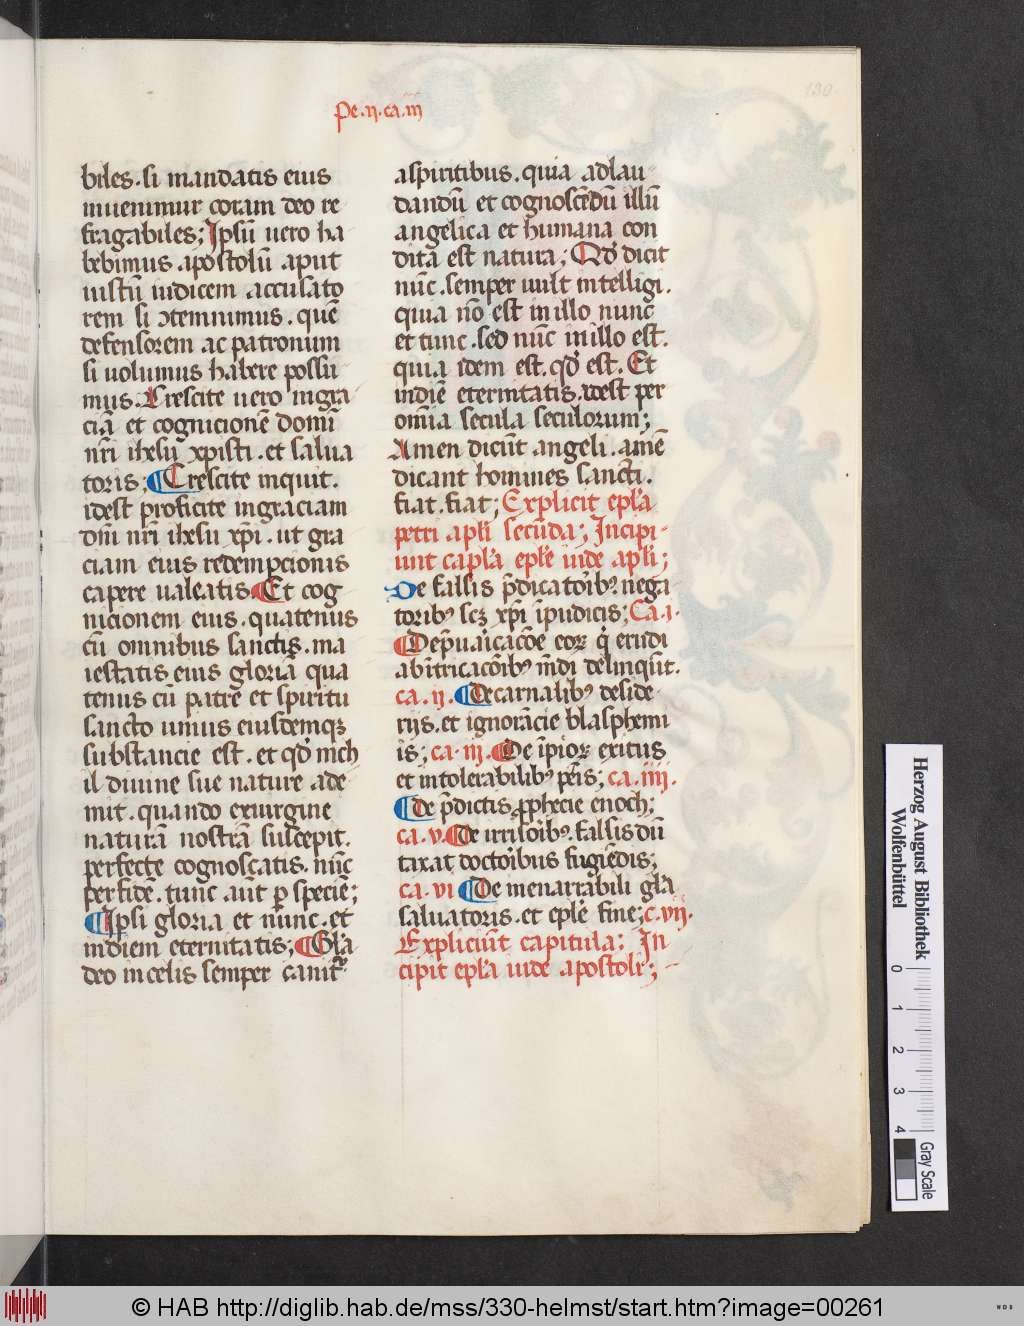 130.
Pe.ij.ca.iij
biles. si mandatis eius
inuenimur coram deo re
fragabiles; Ipsū uero ha
bebimus apostolū aput
iustū iudicem accusato
rem si ↄtemnimus. quē
defensorem ac patronum
si uolumus habere possu
mus. Crescite uero ingra
ciā et cognicionē domī
nr̄i ihesu xp̄isti. et salua
toris; Crescite inquit.
idest proficite ingraciam
dn̄i nr̄i ihesu xp̄i. ut gra
ciam eius redempcionis
capere ualeatis. Et cog
nicionem eius. quatenus
cū omnibus sanctis. ma
iestatis eius gloriā qua
tenus cū patre et spiritu
sancto unius eiusdemqꝫ
substancie est. et qd̕ nich
il diuine sue nature ade
mit. quando exuirgine
naturā nostrā suscepit.
perfecte cognoscatis. nūc
perfidē. tunc aūt ꝑ speciē;
Ipsi gloria et nunc. et
indiem eternitatis; Gl̄a
deo incelis semper canit᷑
aspiritibus. quia adlau
dandū et cognoscēdū illū
angelica et humana con
dita est natura; Qd̕ dicit
nūc. semper uult intelligi.
quia nō est in illo nunc
et tunc. sed nūc in illo est.
quia idem est. qd̕ est. Et
indiē eternitatis. idest per
omīa secula seculorum;
Amen dicūt angeli. amē
dicant homines sancti.
fiat. fiat; Explicit epl̄a
petri apl̄i secūda; Incipi
unt capl̄a epl̄e iude apl̄i;
De falsis p̄dicatoribꝰ nega
toribꝰ scꝫ xp̄i īpudicis; Ca.i.
De p̄uaricacōe eoꝝ q̇ erudi
abītricacōibꝰ mūdi delinqūt.
ca.ij. De carnalibꝰ deside
rijs. et ignorācie blasphemi
is; ca.iij. De īpioꝝ exitus
et intolerabilibꝰ pēis; ca.iiij.
De p̄dictis ꝓphecie enoch;
ca.v. De irrisoībꝰ. falsis dū
taxat doctoribus fugiēdis;
ca.vi De inenarrabili gl̄a
saluatoris. et epl̄e fine; c.vij.
Expliciūt capitula: In
cipit epl̄a iude apostoli;
Herzog August Bibliothek
Wolfenbüttel
0 1 2 3 4
Gray Scale
© HAB http://diglib.hab.de/mss/330-helmst/start.htm?image=00261